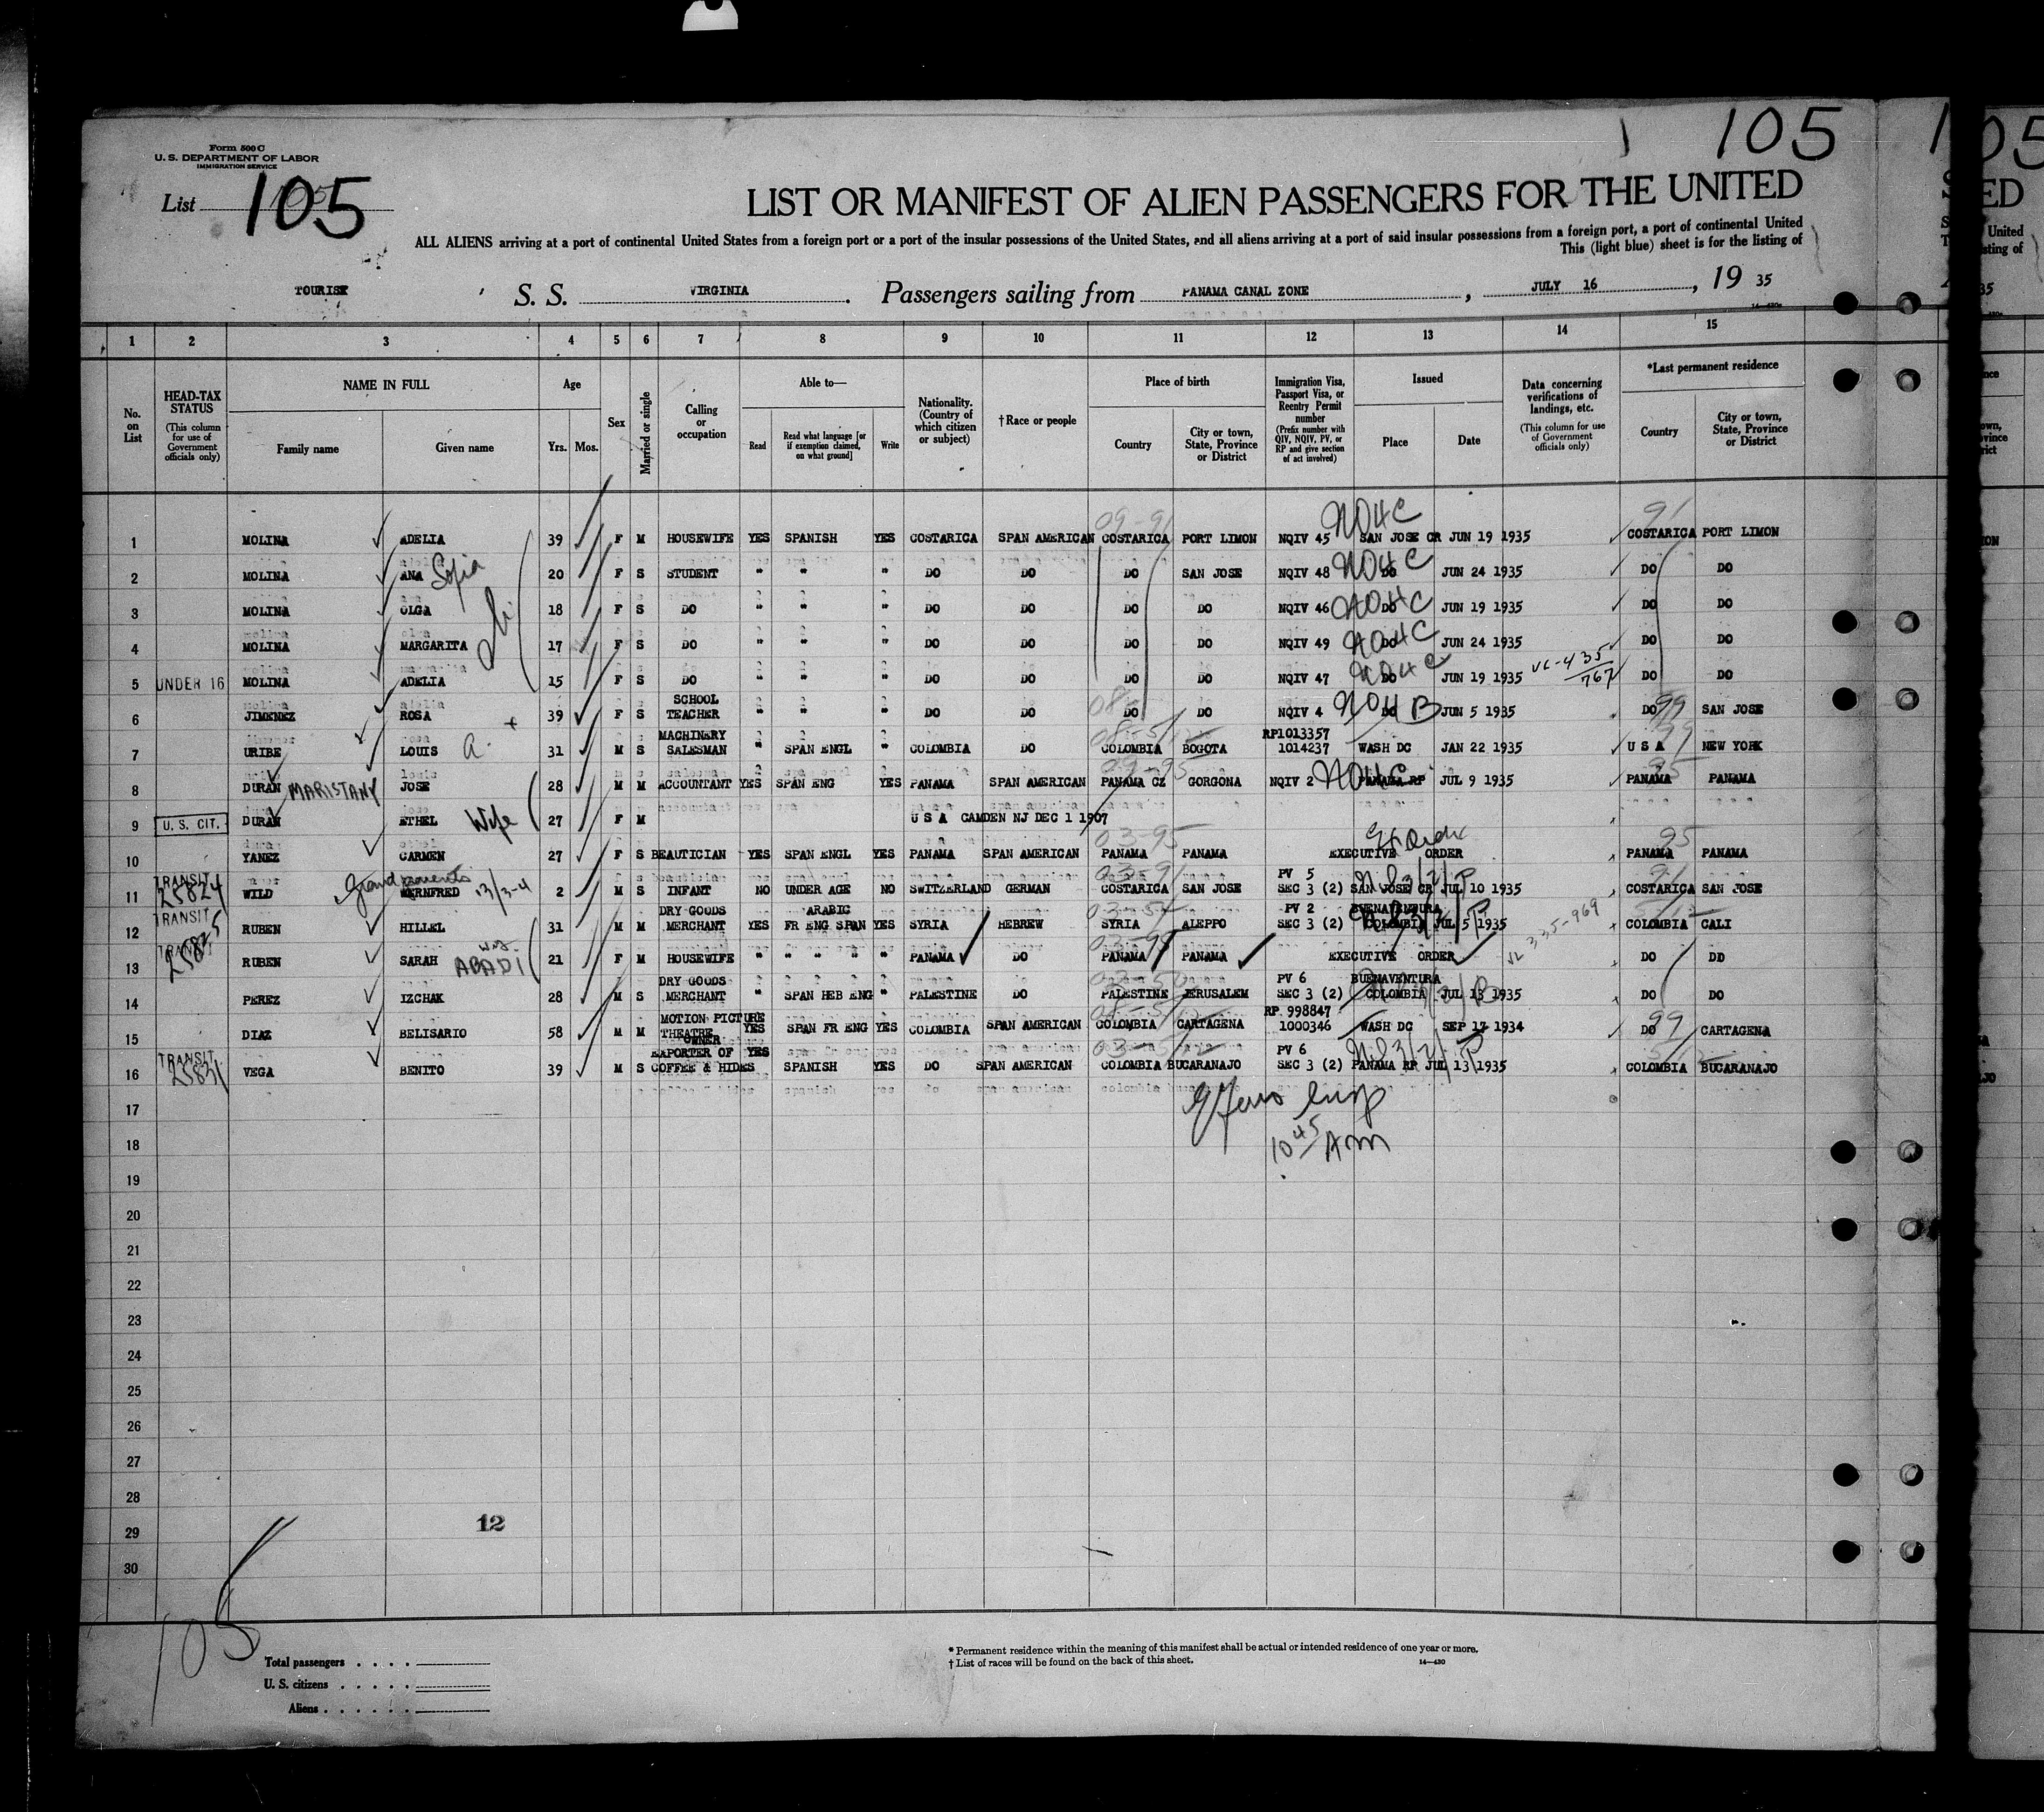 105
Form 500 C
U. S. DEPARTMENT OF LABOR
IMMIGRATION SERVICE
List 105
LIST OR MANIFEST OF ALIEN PASSENGERS FOR THE UNITED
ALL ALIENS arriving at a port of continental United States from a foreign port or a port of the insular possessions of the United States, and all aliens arriving at a port of said insular possessions from a foreign port, a port of continental United
This (light blue) sheet is for the listing of
TOURIST S. S. VIRGINIA Passengers sailing from PANAMA CANAL ZONE, JULY 16, 19 35
1 2 3 4 5 6 7 8 9 10 11 12 13 14 15
No. on List
HEAD-TAX STATUS (This column for use of Government officials only)
NAME IN FULL Family name Given name
Age Yrs. Mos.
Sex
Married or single
Calling or occupation
Able to— Read Read what language [or if exemption claimed, on what ground] Write
Nationality. (Country of which citizen or subject)
†Race or people
Place of birth Country City or town, State, Province or District
Immigration Visa, Passport Visa, or Reentry Permit number (Prefix number with QIV, NQIV, PV, or RP and give section of act involved)
Issued Place Date
Data concerning verifications of landings, etc. (This column for use of Government officials only)
*Last permanent residence Country City or town, State, Province or District
1 MOLINA ADELIA 39 F M HOUSEWIFE YES SPANISH YES COSTARICA SPAN AMERICAN COSTARICA PORT LIMON NQIV 45 SAN JOSE CR JUN 19 1935 COSTARICA PORT LIMON
2 MOLINA ANA Sofia 20 F S STUDENT " " " DO DO DO SAN JOSE NQIV 48 DO JUN 24 1935 DO DO
3 MOLINA OLGA 18 F S DO " " " DO DO DO DO NQIV 46 DO JUN 19 1935 DO DO
4 MOLINA MARGARITA 17 F S DO " " " DO DO DO DO NQIV 49 DO JUN 24 1935 DO DO
5 UNDER 16 MOLINA ADELIA 15 F S DO " " " DO DO DO DO NQIV 47 DO JUN 19 1935 DO DO
6 JIMENEZ ROSA 39 F S SCHOOL TEACHER " " " DO DO DO DO NQIV 4 DO JUN 5 1935 DO SAN JOSE
7 URIBE LOUIS a. 31 M S MACHINERY SALESMAN " SPAN ENGL " COLOMBIA DO COLOMBIA BOGOTA RP1013357 1014237 WASH DC JAN 22 1935 U S A NEW YORK
8 DURAN MARISTANY JOSE 28 M M ACCOUNTANT YES SPAN ENG YES PANAMA SPAN AMERICAN PANAMA CZ GORGONA NQIV 2 PANAMA RP JUL 9 1935 PANAMA PANAMA
9 U. S. CIT. DURAN ETHEL Wife 27 F M U S A CAMDEN NJ DEC 1 1907
10 YANEZ CARMEN 27 F S BEAUTICIAN YES SPAN ENGL YES PANAMA SPAN AMERICAN PANAMA PANAMA EXECUTIVE ORDER PANAMA PANAMA
11 TRANSIT 25824 WILD WERNFRED Grand parents 2 M S INFANT NO UNDER AGE NO SWITZERLAND GERMAN COSTARICA SAN JOSE PV 5 SEC 3 (2) SAN JOSE CR JUL 10 1935 COSTARICA SAN JOSE
12 TRANSIT 25825 RUBEN HILLEL 31 M M DRY GOODS MERCHANT YES ARABIC FR ENG SPAN YES SYRIA HEBREW SYRIA ALEPPO PV 2 SEC 3 (2) BUENAVENTURA COLOMBIA JUL 5 1935 COLOMBIA CALI
13 TRANSIT RUBEN SARAH ABADI 21 F M HOUSEWIFE " " " " " PANAMA DO PANAMA PANAMA EXECUTIVE ORDER DO DO
14 PEREZ IZCHAK 28 M S DRY GOODS MERCHANT " SPAN HEB ENG " PALESTINE DO PALESTINE JERUSALEM PV 6 SEC 3 (2) BUENAVENTURA COLOMBIA JUL 13 1935 DO DO
15 DIAZ BELISARIO 58 M M MOTION PICTURE THEATRE OWNER YES SPAN FR ENG YES COLOMBIA SPAN AMERICAN COLOMBIA CARTAGENA RP 998847 1000346 WASH DC SEP 17 1934 DO CARTAGENA
16 TRANSIT 25831 VEGA BENITO 39 M S EXPORTER OF COFFEE & HIDES YES SPANISH YES DO SPAN AMERICAN COLOMBIA BUCARANAJO PV 6 SEC 3 (2) PANAMA RP JUL 13 1935 COLOMBIA BUCARANAJO
17
10 45 AM
18
19
20
21
22
23
24
25
26
27
28
29 12
30
105
Total passengers
U. S. citizens
Aliens
* Permanent residence within the meaning of this manifest shall be actual or intended residence of one year or more.
† List of races will be found on the back of this sheet.
14—430